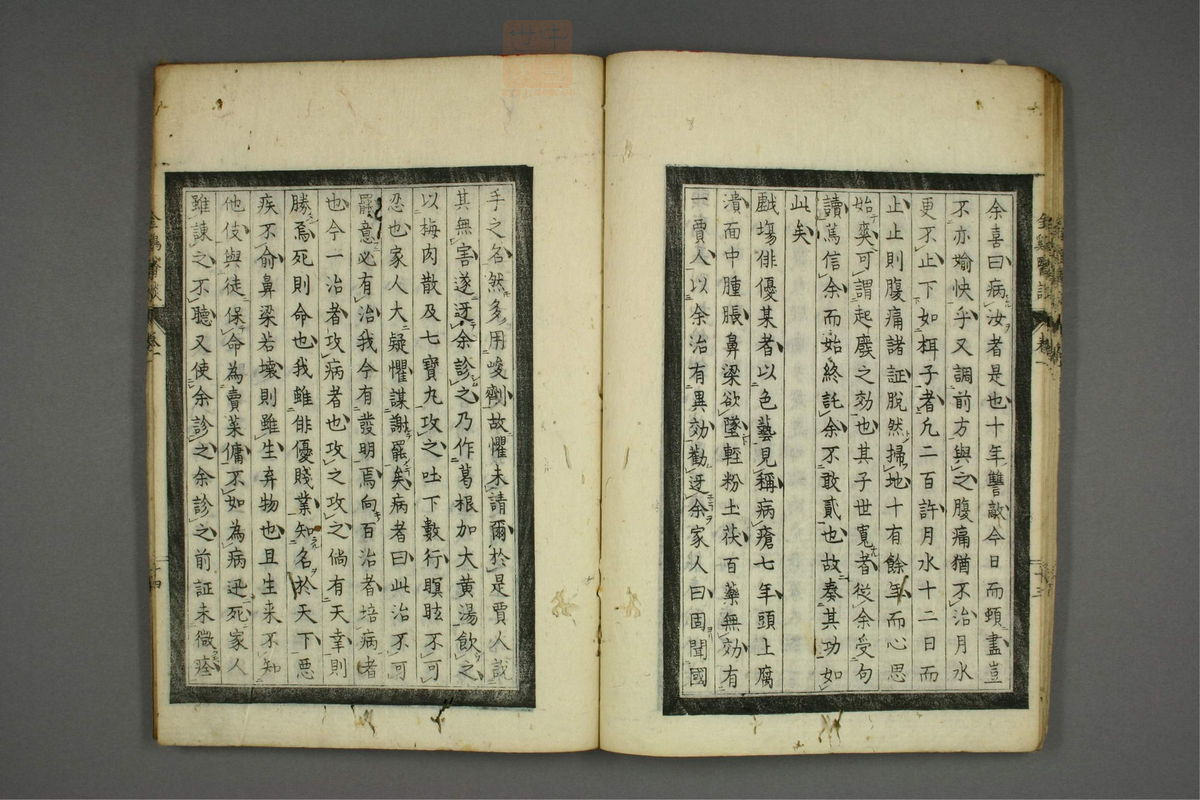 余喜曰病汝者是也十年讐敵今日而頸盡豈
不亦愉快乎又調前方與之腹痛猶不治月水
更不止下如柤子者凢二百許月水十二日而
止止則腹痛諸証脫然掃地十有餘年而心思
始爽可謂起廢之効也其子世寬者從余受句
讀篤信余而始終託余不敢貳也故奏其功如
此矣
戲塲俳優某者以色藝見稱病瘡七年頭上腐
潰面中腫脹鼻梁欲墜輕粉土茯百藥無効有
一賈人以余治有異効勸迓余家人曰固聞國
手之名然多用峻劑故懼未請爾於是賈人説
其無害遂迓余診之乃作葛根加大黃湯飲之
以梅肉散及七寶丸攻之吐下數行瞑眩不可
忍也家人大疑懼謀謝罷矣病者曰此治不可
罷意必有治我今有發明焉向百治者培病者
也今一治者攻病者也攻之攻之倘有天幸則
勝焉死則命也我雖俳優賤業知名於天下惡
疾不俞鼻梁若壞則雖生弃物也且生来不知
他伎與徒保命為賣菜傭不如為病迅死家人
雖諫之不聽又使余診之余診之前証未徴痊
卷一
十三
十四